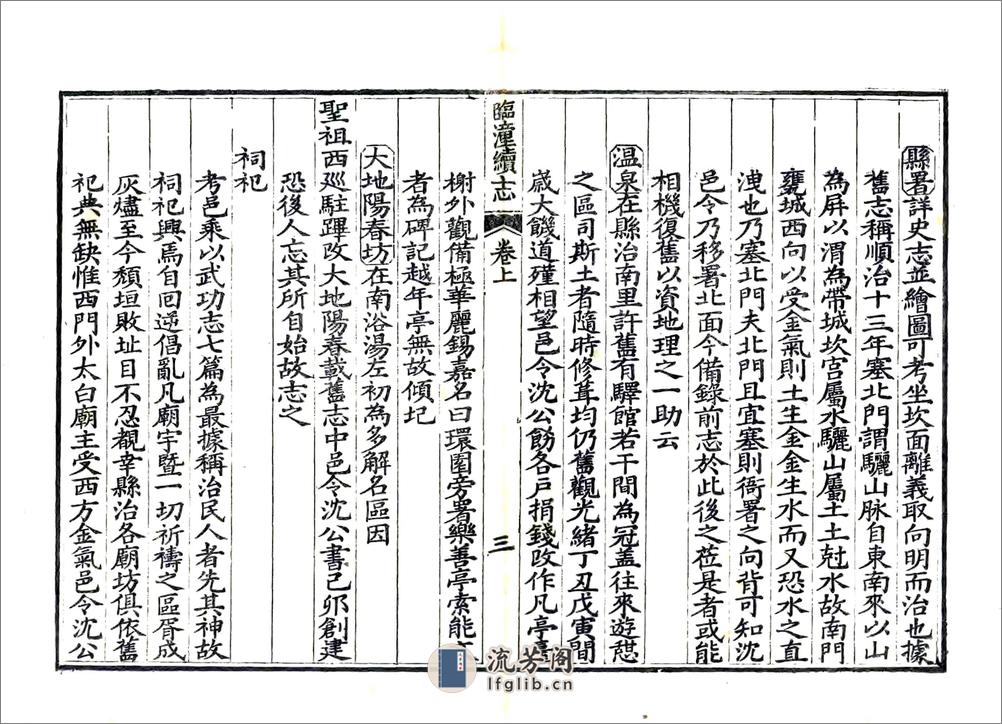 縣署詳史志並繪圖可考坐坎面離義取向明而治也據
舊志稱順治十三年塞北門謂驪山脉自東南來以山
為屏以渭為帶城坎宮屬水驪山屬土土尅水故南門
甕城西向以受金氣則土生金金生水而又恐水之直
洩也乃塞北門夫北門且宜塞則衙署之向背可知沈
邑令乃移署北面今備錄前志於此後之莅是者或能
相機復舊以資地理之一助云
溫泉在縣治南里許舊有驛館若干間為冠盖往來遊憇
之區司斯土者隨時修葺均仍舊觀光緒丁丑戊寅間
歲大饑道殣相望邑令沈公飭各戶捐錢改作凡亭臺
榭外觀備極華麗錫嘉名曰環園旁署樂善亭索能文
者為碑記越年亭無故傾圮
大地陽春坊在南浴湯左初為多解名區因
聖祖西巡駐蹕改大地陽春載舊志中邑令沈公書己卯創建
恐後人忘其所自始故志之
祠祀
考邑乘以武功志七篇為最據稱治民人者先其神故
祠祀興焉自回逆倡亂凡廟宇暨一切祈禱之區胥成
灰燼至今頹垣敗址目不忍覩幸縣治各廟坊俱依舊
祀典無缺惟西門外太白廟主受西方金氣邑令沈公
臨潼續志
卷上
三
流芳阁
lfglib.cn